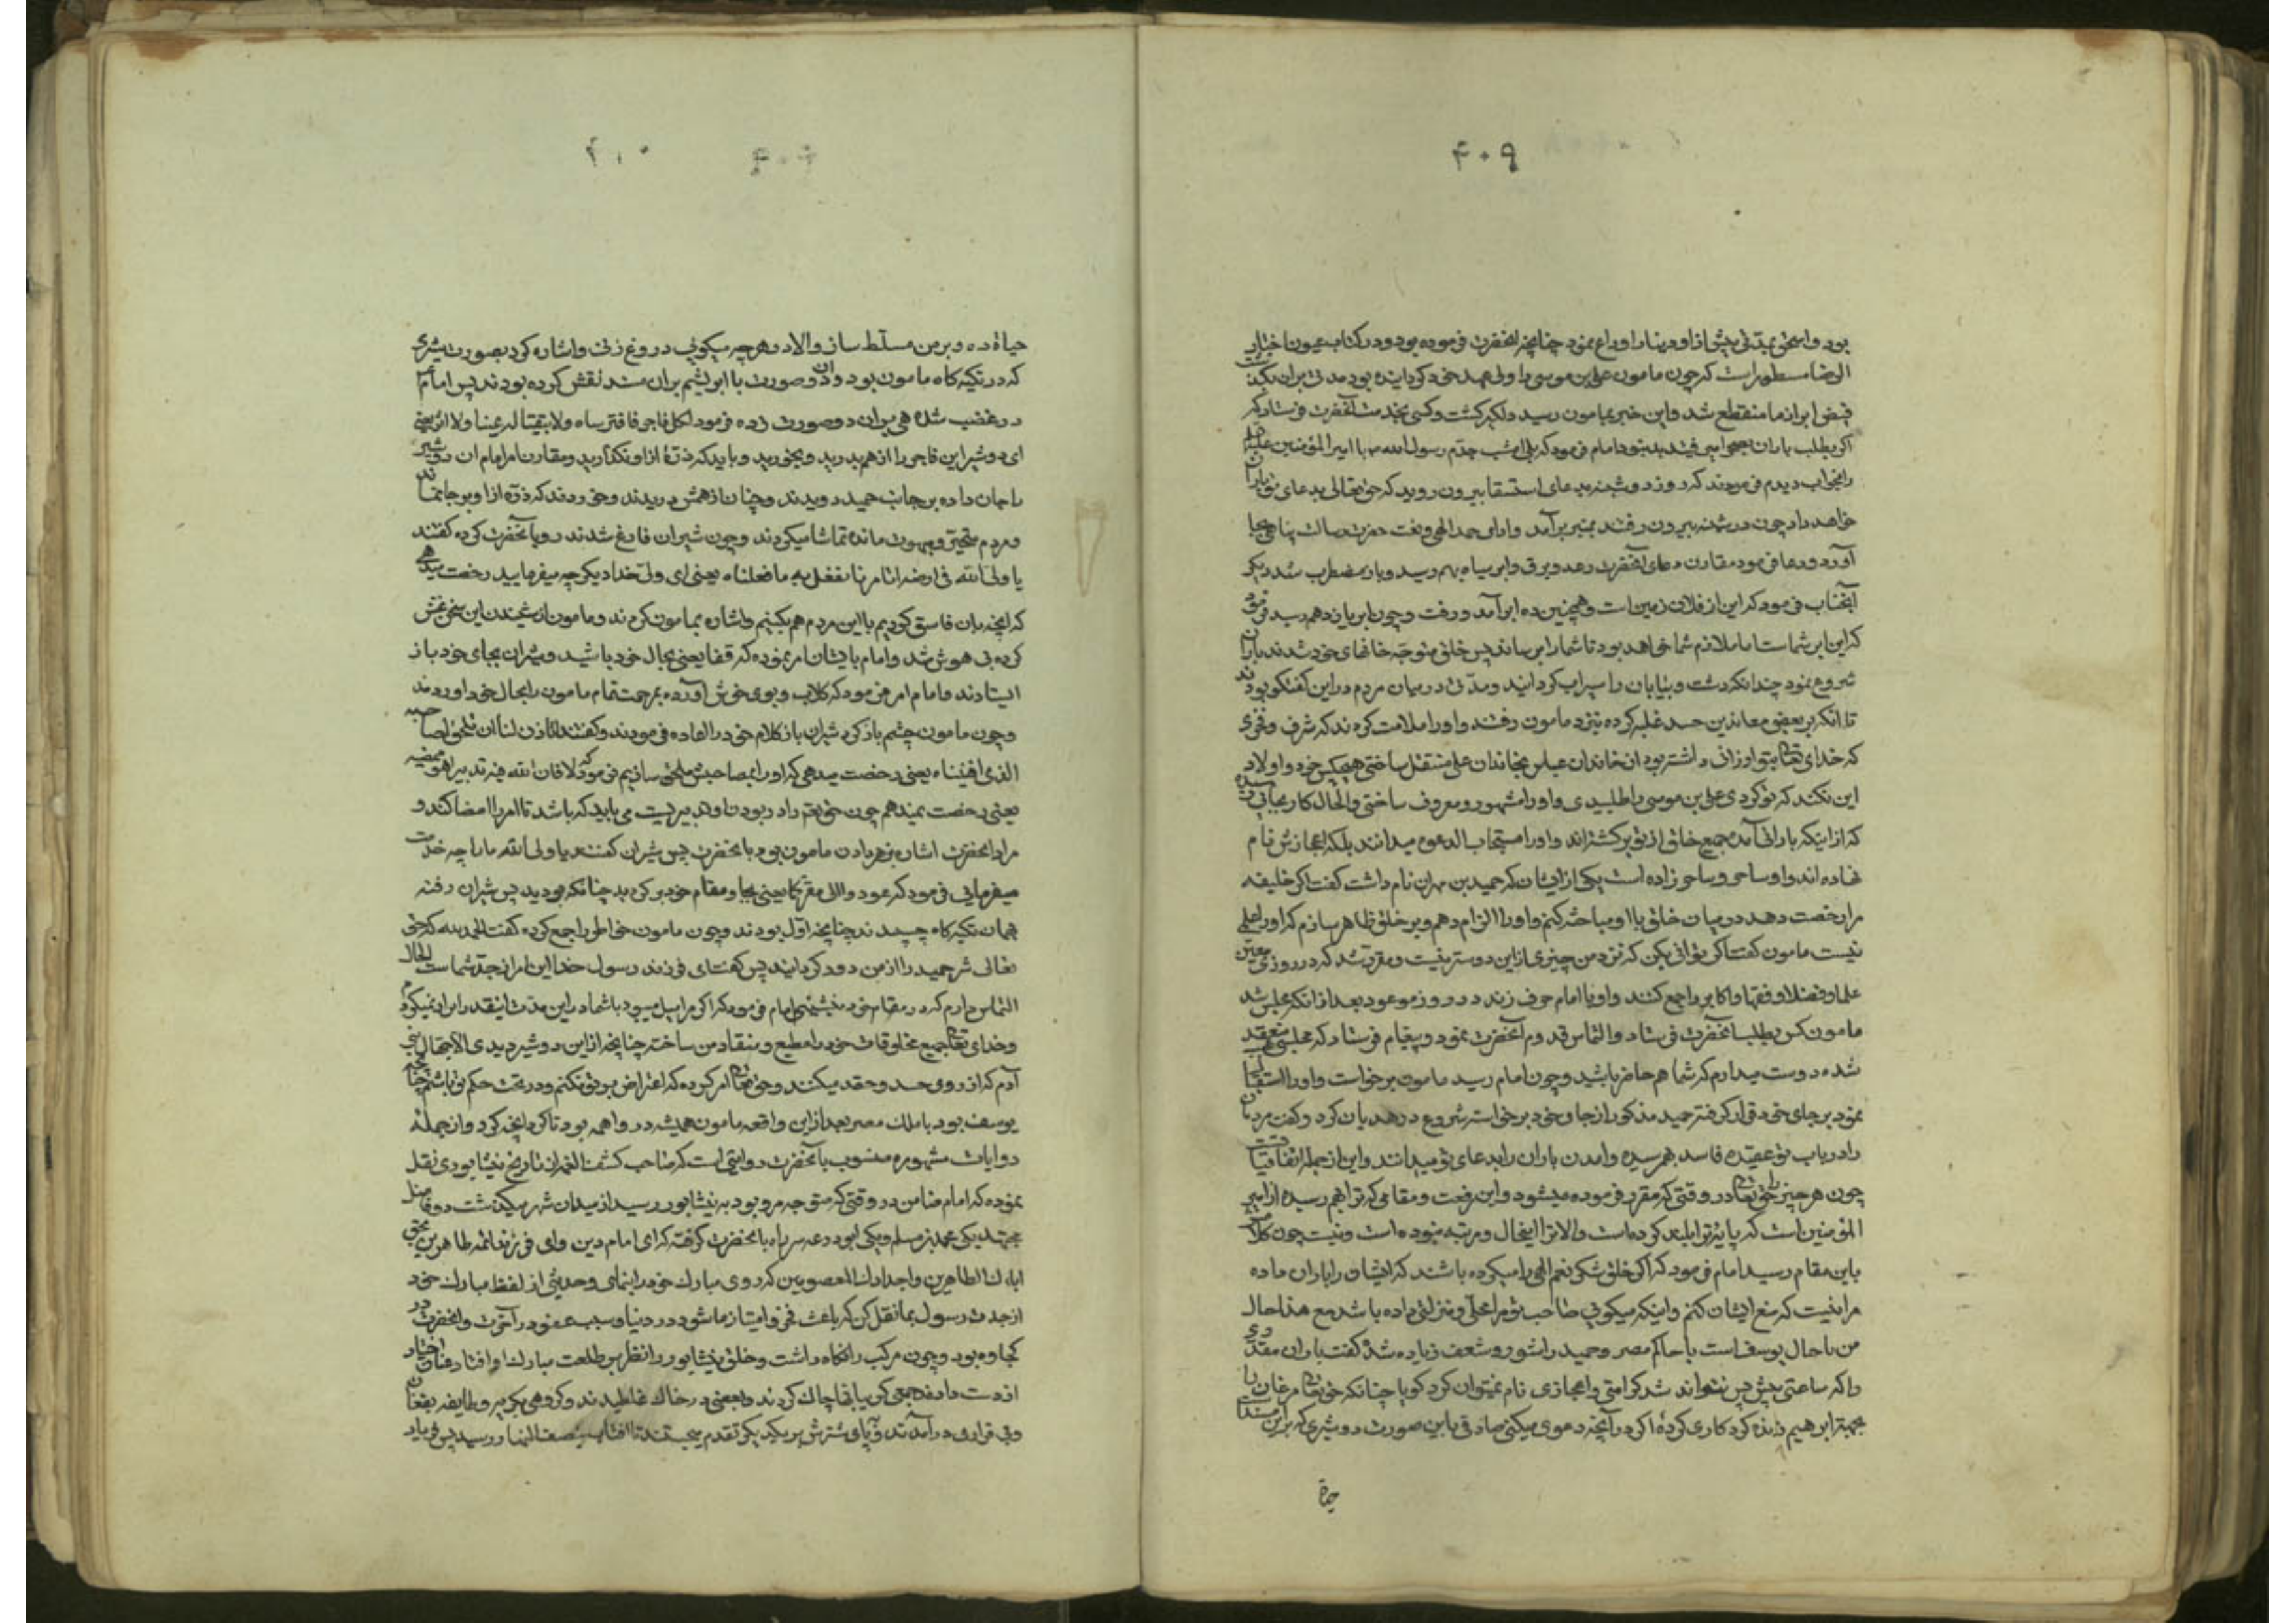 ۴۰۹
بود و اسحق بمدتی پیش از او دینا را وداع نمود چنانچه آنحضرت فرموده بود و در کتاب عیون اخبار
الرضا مسطور است که چون مامون علی بن موسی را ولی عهد خود گردانیده بود مدتی بران بگذشت
فیض ابر از ما منقطع شد و این خبر بمامون رسید دلگیر گشت و کسی بخدمت آنحضرت فرستاد که
اگر بطلب باران بصحرا میرفتند بد نبود امام فرمود که بلی امشب جدم رسول الله با امیر المؤمنین علیه
را بخواب دیدم فرمودند که روز دوشنبه بدعای استسقا بیرون روید که حق تعالی بدعای تو باران
خواهد داد چون دوشنبه بیرون رفتند بمنبر برآمد و ادای حمد الهی و نعت حضرت رسالت پناهی بجا
آورد و دعا فرمود مقارن دعای آنحضرت رعد و برق و ابر سیاه بهم رسید و باز مضطرب شد دیگر
آنجناب فرمود که این از فلان زمین است و همچنین ده ابر آمد و رفت و چون ابر یازدهم رسید فرمود
که این ابر شماست اما ملازم شما خواهد بود تا شما را برساند پس خلق متوجه خانهای خود شدند باران
شروع نمود چندانکه دشت و بیابان را سیراب گردانید و مدتی در میان مردم در این گفتگو بودند
تا آنکه بر بعضی معاندین حسد غلبه کرده نزد مامون رفتند و او را ملامت کردند که شرف و فخری
که خدای تعالی بتو ارزانی داشته بود از خاندان عباس بخاندان علی منتقل ساختی هیچکس خود و اولاد
این نکند که تو کردی علی بن موسی را طلبیدی و او را مشهور و معروف ساختی و الحال کار بجائی رسیده
که از اینکه بارانی آمد جمیع خلق از تو برگشته‌اند و او را مستجاب الدعوه میدانند بلکه اعجازش نام
نهاده‌اند و او ساحر و ساحر زاده است یکی از ایشان که حمید بن مهران نام داشت گفت اگر خلیفه
مرا رخصت دهد در میان خلق با او مباحثه کنم و او را الزام دهم و بر خلق ظاهر سازم که او را علمی
نیست مامون گفت اگر توانی بکن که نزد من چیزی از این دوستر نیست و مقرر شد که در روزی معین
علما و فضلا و فقها و اکابر را جمع کنند و او با امام حرف زند در روز موعود بعد از آنکه مجلس شد
مامون کس بطلب آنحضرت فرستاد و التماس قدوم آنحضرت نمود و پیغام فرستاد که مجلسی منعقد
شده دوست میدارم که شما هم حاضر باشید و چون امام رسید مامون برخواست و او را استقبال
نمود بر جای خود قرار گرفت حمید مذکور از جا و خود برخواسته شروع در هذیان کرد و گفت مردمان
را در باب تو عقیده فاسد بهم رسیده و آمدن باران را بدعای تو میدانند و این از جمله اتفاقیات
چون هر چیز را حق تعالی در وقتی که مقرر فرموده میشود و این رفعت و مقامی که ترا بهم رسیده از امیر
المؤمنین است که پایه ترا بلند کرده است و الا ترا این حال و مرتبه نبوده است و نیست چون کلامش
باین مقام رسید امام فرمود که اگر خلق شکر نعم الهی را میکرده باشند که ایشان را باران داده
مرا نیست که منع ایشان کنم و اینکه میگوئی صاحب تو مرا محلی و منزلتی داده باشد مع هذا حال
من با حال یوسف است با حاکم مصر و حمید را شور و شعف زیاده شد و گفت باران مقدری
را که ساعتی پیش و پس نتواند شد کرامتی و اعجازی نام نمیتوان کرد گویا چنانکه حق تعالی مرغان را
بجهة ابرهیم زنده کرد کاری کرده اگر در آنچه دعوی میکنی صادقی باین صورت دو شیری که بر این مسند است
حیاة
۴۱۰
حیاة ده و بر من مسلط ساز و الا در هر چه میگوئی دروغ زنی و اشاره کرد بصورت شیری
که در تکیه گاه مامون بود و آن دو صورت با ابریشم بران مسند نقش کرده بودند پس امام
در غضب شده هی بران دو صورت زده فرمود لکل فاجر فافترساه ولا بقیتا له عینا ولا اثر یعنی
ای دو شیر این فاجر را از هم بدرید و بخورید و باید که ذره از او نگذارید و مقارن امر امام ان دو شیر
را جان داده بر جانب حمید دویدند و چنان از همش دریدند و خوردند که ذره از او بر جا نماند
و مردم متحیر و مبهوت مانده تماشا میکردند و چون شیران فارغ شدند رو باآنحضرت کرده گفتند
یا ولی الله فی ارضه اتامرنا نفعل به ما فعلناه یعنی ای ولی خدا دیگر چه میفرمایید رخصت میدهی
که آنچه بان فاسق کردیم با این مردم هم بکنیم و اشاره بمامون کردند و مامون از شنیدن این سخن غش
کرده بی هوش شد و امام بایشان امر نموده که قفا یعنی بحال خود باشید و شیران بجای خود باز
ایستادند و امام امر فرمود که گلاب و بوی خوش آورده بزحمت تمام مامون را بحال خود آوردند
و چون مامون چشم باز کرد شیران باز کلام خود را اعاده فرمودند و گفتند تاذن لنا ان نلحق بصاحبه
الذی افنیناه یعنی رخصت میدهی که او را بصاحبش ملحق سازیم فرمود که لا فان الله فیه تدبیرا هو ممضیه
یعنی رخصت نمیدهم چون حق تعم را در بودن او تدبیریست می باید که باشد تا امر را امضا کند و
مراد آنحضرت اشاره بزهر دادن مامون بود باآنحضرت پس شیران گفتند یا ولی الله ما را چه خدمت
میفرمائی فرمود که عودوا الی مقرکما یعنی بجا و مقام خود برگردید چنانکه بودید پس شیران رفته
بهمان تکیه گاه چسپیدند چنانچه اول بودند و چون مامون خواطر را جمع کرده گفت الحمد لله که حق
تعالی شر حمید را از من دور گردانید پس گفت ای فرزند رسول خدا این امر از جد شماست الحال
التماس دارم که در مقام خود بنشینی امام فرمود که اگر مرا میل میبود با شما در این مدت اینقدر ابرام نمیکردم
و خدای تعالی جمیع مخلوقات خود را مطیع و منقاد من ساخته چنانچه از این دو شیر دیدی الا جهال بنی
آدم که از روی حسد و حقد میکنند و حق تعالی امر کرده که اعتراض بر تو نکنم و در تحت حکم تو باشم چنانچه
یوسف بود با ملک مصر بعد از این واقعه مامون همیشه در واهمه بود تا کرد آنچه کرد و از جمله
روایات مشهوره منسوب باآنحضرت روایتی است که صاحب کشف الغمه از تاریخ نیشابوری نقل
نموده که امام ضامن در وقتی که متوجه مرو بود به نیشابور رسید از میدان شهر میگذشت دو فاضل
مجتهد یکی محمد بن مسلم و یکی ابو زرعه سر راه باآنحضرت گرفته که ای امام دین و ای فرزند ائمه طاهرین بحق
ابائک الطاهرین و اجدادک المعصومین که روی مبارک خود را بنمای و حدیثی از لفظ مبارک خود
از جدت رسول بما نقل کن که باعث فخر و امتیاز ما شود در دنیا و سبب عفو در آخرت و آنحضرت در
کجاوه بود و چون مرکب را نگاه داشت و خلق نیشابور را نظر بر طلعت مبارک او افتاد عنان اختیار
از دست داده جمعی گریبانها چاک کردند و بعضی در خاک غلطیدند و گروهی بگریه و طایفه بفغان
و بی قراری در آمدند و پای شترش بر یکدیگر تقدم میجستند تا آفتاب بنصف النهار رسید پس فریاد